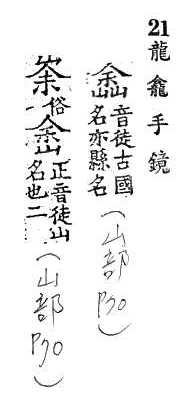 21 龍龕手鏡
嵞 音徒古國
名亦縣名
(山部 P70)
俗 峹 正音徒山
名也二
(山部 P70)